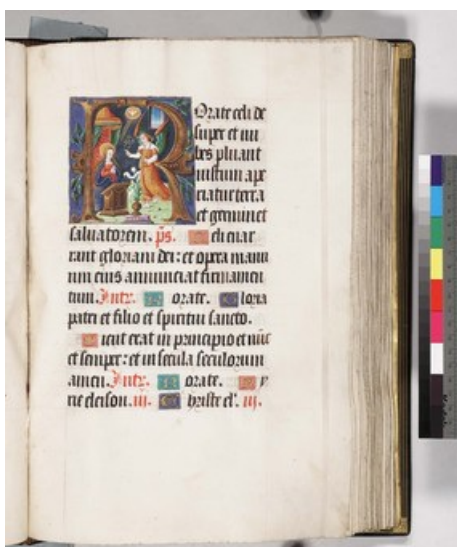 Rorate celi de
super et nu
bes pluant
iustum ape
riatur terra
et germinet
saluatorem. ps. Celi enar
rant gloriam dei: et opera manu
um eius annunciat firmamen
tum. Intr. Rorate. Gloria
patri et filio et spiritui sancto.
Sicut erat in principio et nūc
et semper: et in secula seculorum
amen. Intr. Rorate. Ky
rie eleison. iij. Christe el'. iij.